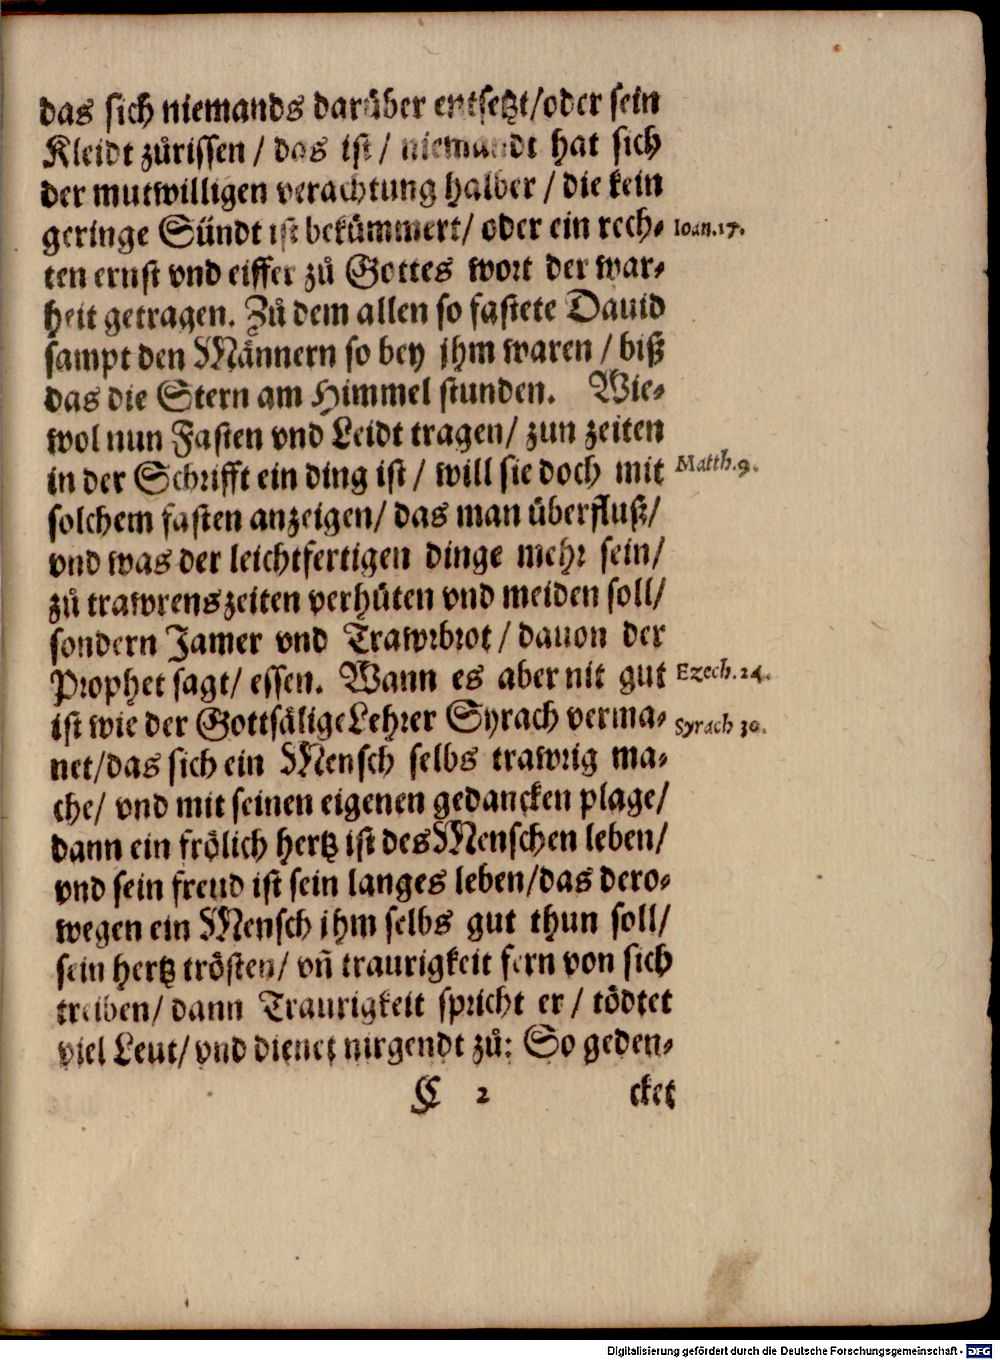 das sich niemands darüber entsetzt/oder sein
Kleidt zůrissen / das ist / niemandt hat sich
der mutwilligen verachtung halber / die kein
geringe Sündt ist bekümmert/ oder ein rech⸗
Ioan.17.
ten ernst vnd eiffer zů Gottes wort der war⸗
heit getragen. Zů dem allen so fastete Dauid
sampt den Männern so bey jhm waren / biß
das die Stern am Himmel stunden. Wie⸗
wol nun Fasten vnd Leidt tragen/ zun zeiten
in der Schrifft ein ding ist / will sie doch mit
Matth.9.
solchem fasten anzeigen/ das man überfluß/
vnd was der leichtfertigen dinge mehr sein/
zů trawrens zeiten verhüten vnd meiden soll/
sondern Jamer vnd Trawrbrot / dauon der
Prophet sagt/ essen. Wann es aber nit gut
Ezech.24.
ist wie der Gottsälige Lehrer Syrach verma⸗
Syrach 30.
net/das sich ein Mensch selbs trawrig ma⸗
che/ vnd mit seinen eigenen gedancken plage/
dann ein frölich hertz ist des Menschen leben/
vnd sein freud ist sein langes leben/das dero⸗
wegen ein Mensch jhm selbs gut thun soll/
sein hertz trösten/ vñ traurigkeit fern von sich
treiben/ dann Traurigkeit spricht er / tödtet
viel Leut/ vnd dienet nirgendt zů: So geden⸗
C 2 cket
Digitalisierung gefördert durch die Deutsche Forschungsgemeinschaft - DFG